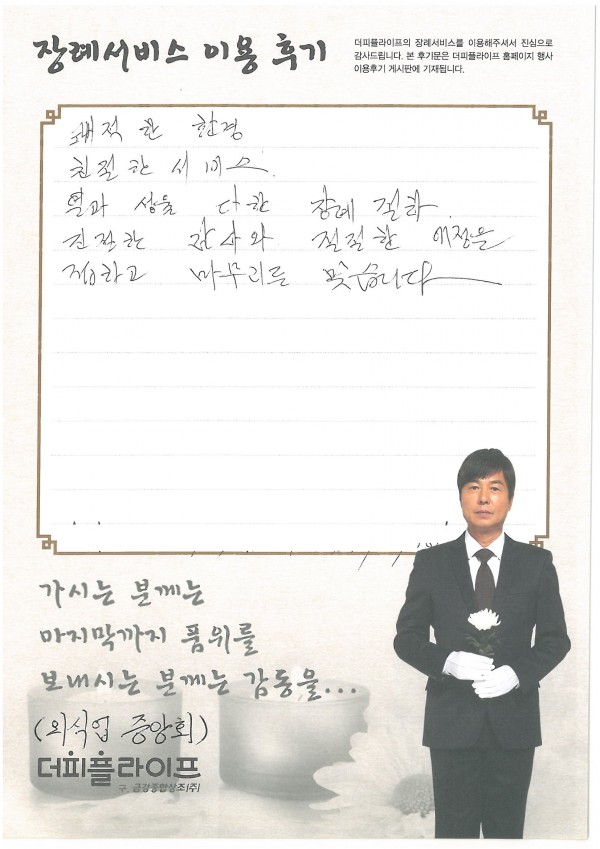 장례서비스 이용 후기
더피플라이프의 장례서비스를 이용해주셔서 진심으로
감사드립니다. 본 후기문은 더피플라이프 홈페이지 행사
이용후기 게시판에 기재됩니다.
쾌적한 환경
친절한 서비스.
열과 성을 다한 장례 절차.
친절한 감사와 절절한 애정을
전하고 마무리를 맺습니다
가시는 분께는
마지막까지 품위를
보내시는 분께는 감동을...
(외식업 중앙회)
더피플라이프
구. 금강종합상조(주)